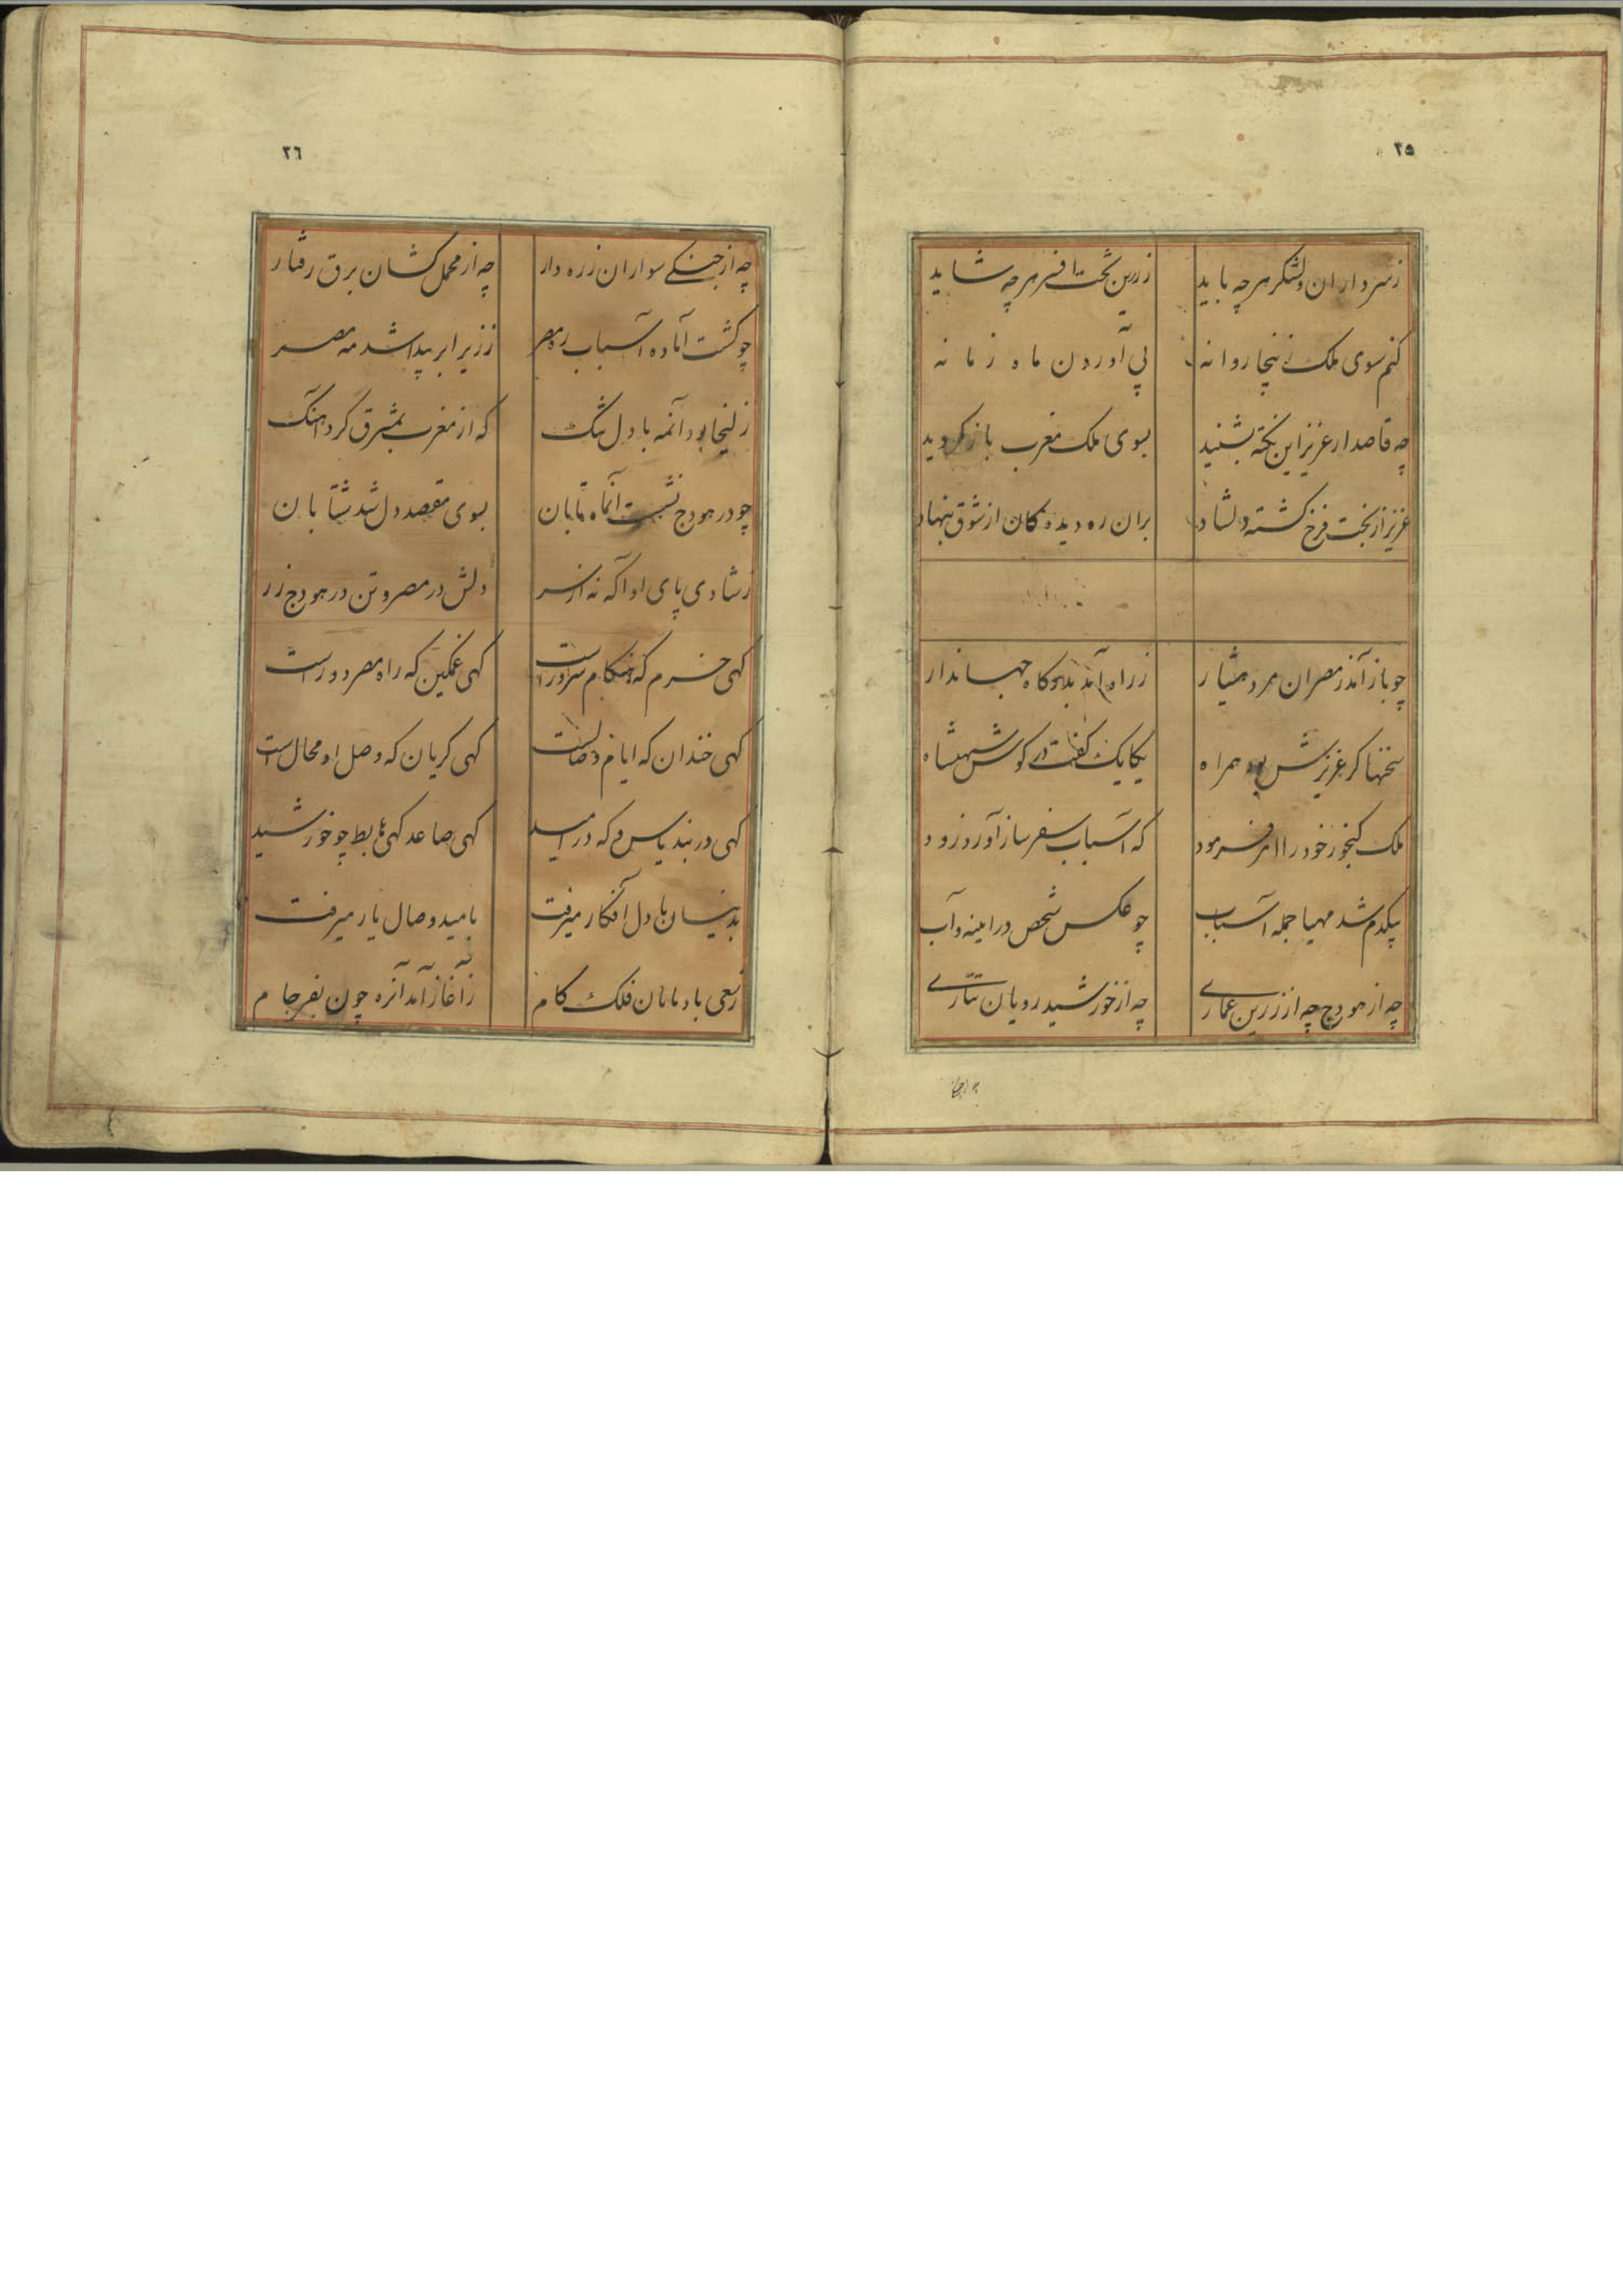 ٢٥
زسرداران ولشکر هرچه باید زرین تخت افسر هرچه شاید
کنم سوی ملک زلیخا روانه پی آوردن ماه زمانه
چه قاصد از عزیز این نکته بشنید بسوی ملک مغرب باز کردید
عزیز از بخت فرخ کشته دلشاد بران ره دیده کان از شوق بنهاد
چو باز آمد ز مصر ان مرد هشیار ز راه آمد بدرکاه جهاندار
سخنها کز عزیزش بود همراه یکایک گفت در کوش شهنشاه
ملک کنجور خود را امر فرمود که اسباب سفر ساز آورد زود
بیکدم شد مهیا جمله اسباب چو عکس شخص در اینه و آب
چه از هودج چه از زرین عماری چه از خورشید رویان تتاری
چه از
٢٦
چه از جنکی سواران زره دار چه از محمل کشان برق رفتار
چو کشت آماده اسباب ره مصر ز زیر ابر پیدا شد مه مصر
زلیخا بود آنمه با دل تنک که از مغرب بمشرق کرد اهنک
چو در هودج نشست آنماه تابان بسوی مقصد دل شد شتابان
زشادی پای او اکه نه از سر دلش در مصر و تن در هودج زر
کهی خرم که هنکام سرور است کهی غمکین که راه مصر دور است
کهی خندان که ایام وصالست کهی کریان که وصل او محال است
کهی در بند یاس و که در امید کهی صاعد کهی هابط چو خورشید
بدینسان با دل افکار میرفت بامید وصال یار میرفت
زسعی بادپایان فلک کام ز آغاز آمد آنره چون بفرجام